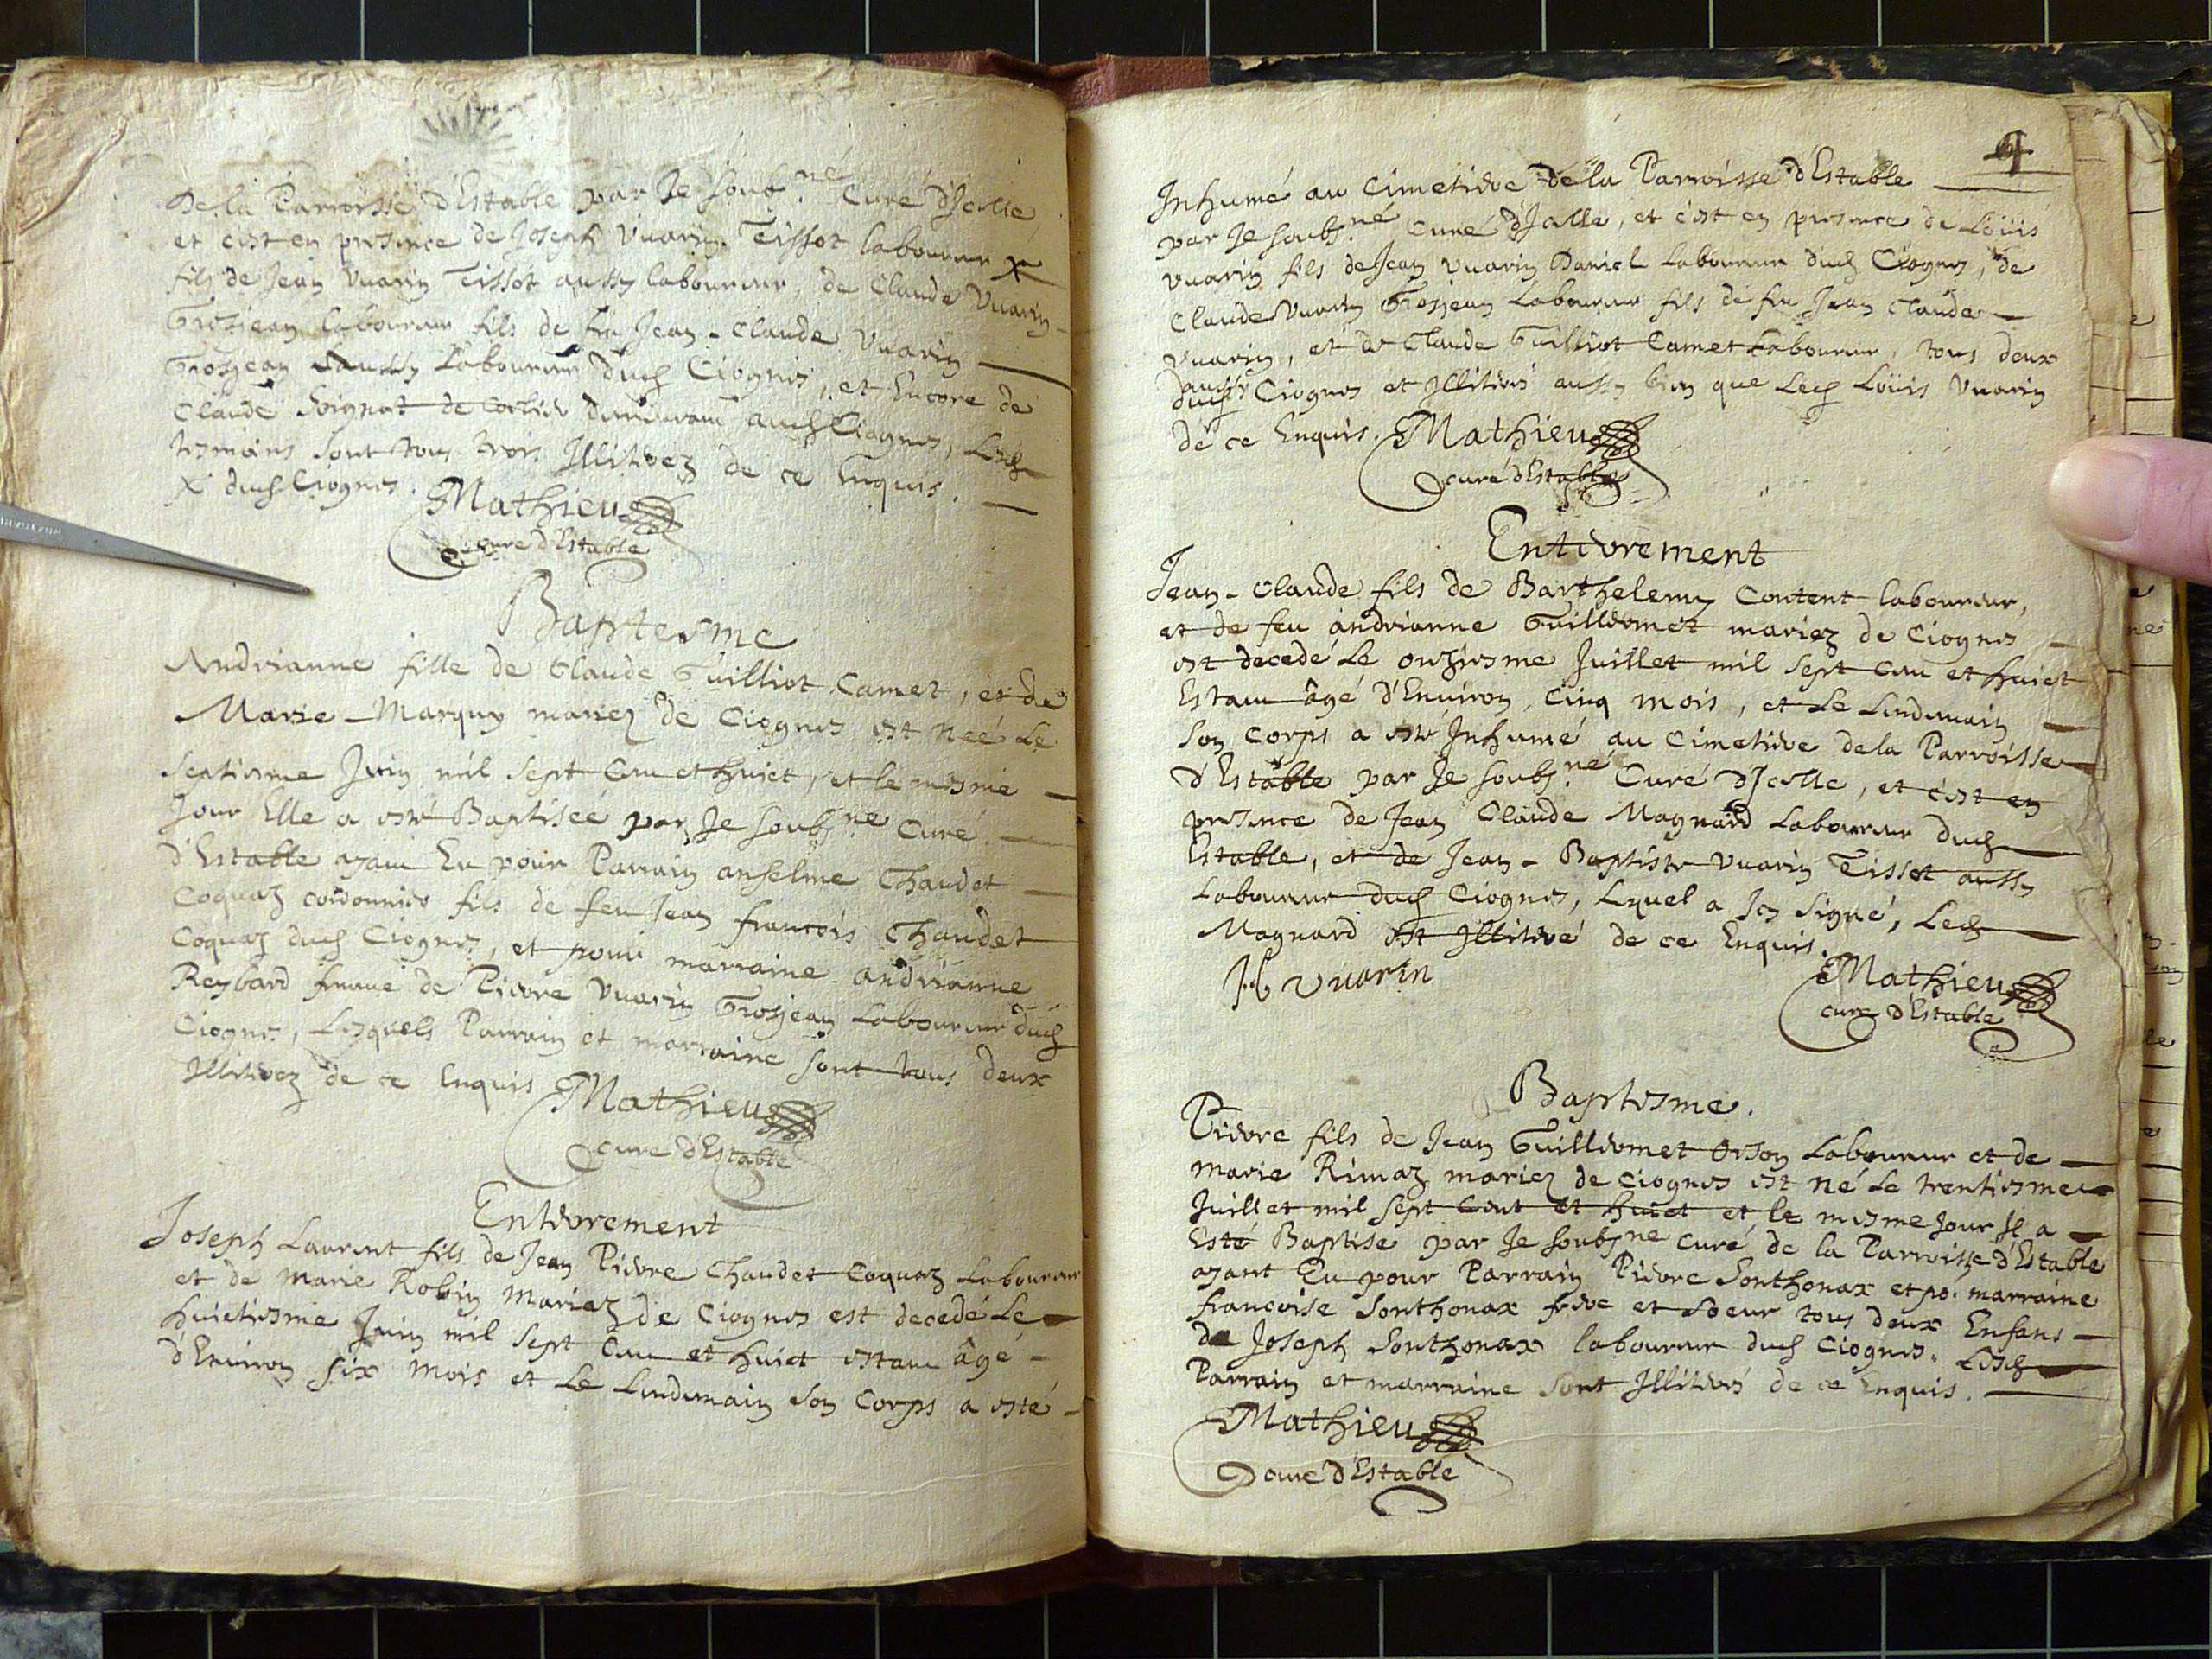 De la Parroisse d'Estable par Je soub.né Curé d'Jcelle
et c'est en presence de Joseph Vuarin Tissot laboureur X
fils de Jean Vuarin Tissot aussy laboureur, de Claude Vuarin
Grosjean laboureur fils de feu Jean-Claude Vuarin
Grosjean aussy Laboureur dud Ciognes, et Encore de
Claude Soignat de demeurant aud Ciognes, Lesd
tesmoins sont tous trois Illiterez de ce Enquis.
X dud Ciognes. Mathieu
curé d'Estable
Baptesme
Andrianne fille de Claude Guilliot Camet, et de
Marie-Marquy mariez de Ciognes est Neé Le
septiesme Juin mil sept Cent et huict, et le mesme
Jour Elle a esté Baptiseé par Je soubs.né Curé
d'Estable ayant Eu pour Parrain anselme Chaudet
Coquaz cordonnier fils de feu Jean francois Chaudet
Coquaz dud Ciognes, et pour marraine andrianne
Reybard femme de Pierre Vuarin Grosjean Laboureur dud
Ciognes, Lesquels Parrain et marraine sont tous deux
Illiterez de ce Enquis Mathieu
curé d'Estable
Enterrement
Joseph Laurent fils de Jean Pierre Chaudet Coquaz Laboureur
et de Marie Robin Mariez de Ciognes est decedé Le
huictiesme Juin mil sept Cent et huict estant âgé
d'Environ six mois et Le Lendemain Son Corps a esté
4
Inhumé au Cimetiere de la Parroisse d'Estable
par Je soubs.né Curé d'Jcelle, et c'est en presence de Loüis
Vuarin fils de Jean Vuarin Daniel Laboureur dud Ciognes, de
Claude Vuarin Grosjean Laboureur fils de feu Jean Claude
Vuarin, et de Claude Guilliot Camet Laboureur, tous deux
aussy
dud Ciognes et Illiterés aussy bien que Led Loüis Vuarin
de ce Enquis. Mathieu
curé d'Estable
Enterrement
Jean-Claude fils de Barthelemy Content laboureur,
et de feu andrianne Guillermet mariez de Ciognes
est decedé Le onziesme Juillet mil sept Cent et huict
Estant âgé d'Environ Cinq mois, et Le Lendemain
Son Corps a esté Inhumé au Cimetiere de la Parroisse
d'Estable par Je soubs.né Curé d'Jcelle, et c'est en
presence de Jean Claude Magnard Laboureur dud
Estable, et de Jean-Baptiste Vuarin Tissot aussy
Laboureur dud Ciognes, Lequel a Icy signé, Led
Magnard est Illiteré de ce Enquis.
Vuarin
Mathieu
curé d'Estable
Baptesme.
Pierre fils de Jean Guillermet Orson Laboureur et de
marie Rimaz mariez de Ciognes est né Le trentiesme
Juillet mil sept Cent et huict et le mesme Jour Il a
Esté Baptise par Je soubsné curé de la Parroisse d'Estable
ayant Eu pour Parrain Pierre Sonthonax et po. marraine
francoise Sonthonax frere et Soeur tous deux Enfans
de Joseph Sonthonax laboureur dud Ciognes. Lesd
Parrain et marraine sont Illiterés de ce Enquis.
Mathieu
curé d'Estable